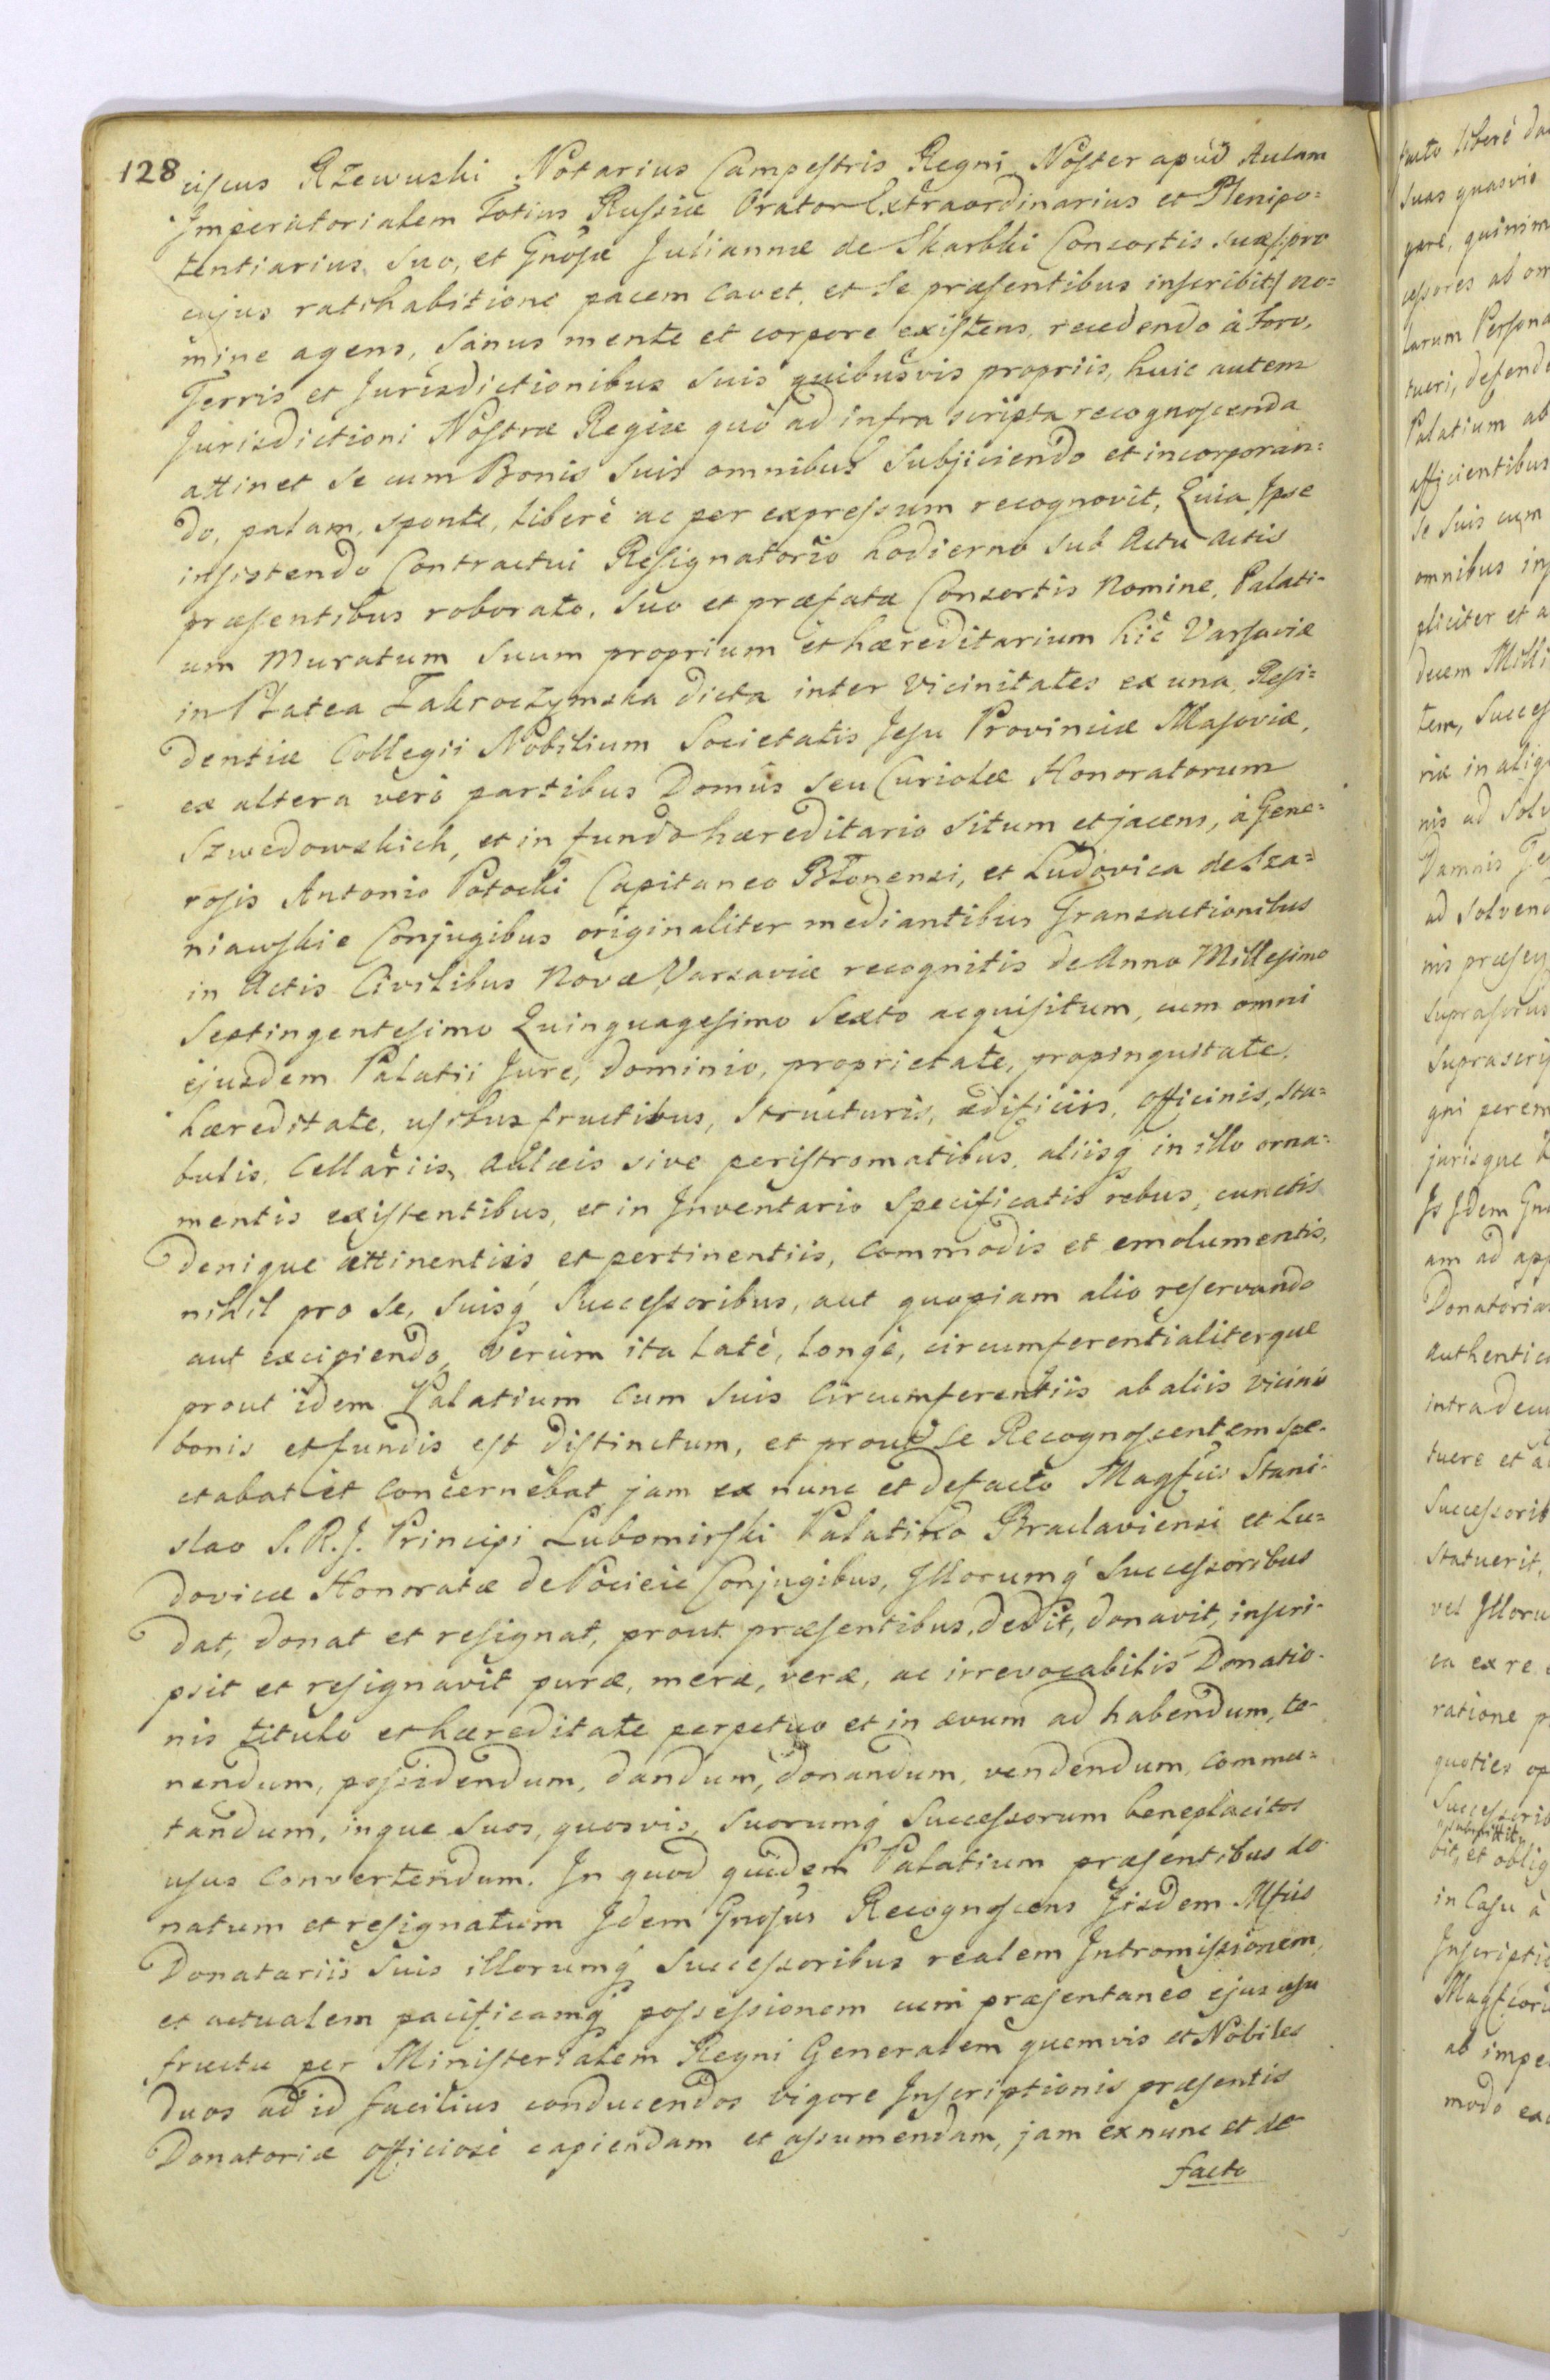 128
ciscus Rzewuski Notarius Campestris Regni Noster apud Aulam
Imperatorialem Totius Russiæ Orator Extraordinarius et Plenipo=
tentiarius, suo, et Gnosæ Juliannæ de Skarbki Consortis suæ /:pro
cujus ratihabitione pacem cavet, et se præsentibus inscribit:/ no=
mine agens, sanus mente et corpore existens, recedendo à Foro,
Terris et Jurisdictionibus suis quibusvis propriis, huic autem
Jurisdictioni Nostræ Regiæ quò ad infra scripta recognoscenda
attinet se cum Bonis suis omnibus subjiciendo et incorporan=
do, palam, sponte, liberè ac per expressum recognovit, Quia Ipse
insistendo Contractui Resignatorio hodierno sub Actu Actis
præsentibus roborato, suo et præfatæ Consortis Nomine, Palati=
um Muratum suum proprium et hæreditarium hìc Varsaviæ
in Platea Zakroczymska dicta inter Vicinitates ex una, Resi=
dentiæ Collegii Nobilium Societatis Jesu Provinciæ Masoviæ,
ex altera verò partibus Domûs seu Curiolæ Honoratorum
Szwedowskich, et in fundo hæreditario situm et jacens, à Gene=
rosis Antonio Potocki Capitaneo Błonensi, et Ludovica de Sza=
niawskie Conjugibus originaliter mediantibus Transactionibus
in Actis Civilibus Novæ Varsaviæ recognitis de Anno Millesimo
Septingentesimo Quinquagesimo Sexto acquisitum, cum omni
ejusdem Palatii Jure, dominio, proprietate, propinquitate,
hæreditate, usibus fructibus, structuris, ædificiis, officinis, sta=
bulis, cellariis, Aulæis sive peristromatibus, aliisq́ in illo orna=
mentis existentibus, et in Inventario specificatis rebus, cunctis
denique attinentiis et pertinentiis, commodis et emolumentis,
nihil pro se, suisq́ Successoribus, aut quopiam alio reservando
aut excipiendo, Verùm ita latè, longè, circumferentialiterque
prout idem Palatium cum suis circumferentiis ab aliis vicinis
bonis et fundis est distinctum, et prout se Recognoscentem spe-
ctabat et concernebat, jam ex nunc et de facto Magfcis Stani=
slao S. R. J. Principi Lubomirski Palatino Braclaviensi et Lu=
dovicæ Honoratæ de Pocieie Conjugibus, Illorumq́ Successoribus
dat, donat et resignat, prout præsentibus, dedit, donavit, inscri-
psit et resignavit puræ, meræ, veræ, ac irrevocabilis Donatio-
nis titulo et hæreditate perpetuo et in ævum ad habendum, te-
nendum, possidendum, dandum, donandum, vendendum, commu=
tandum, inque suos, quosvis, suorumq́ Successorum beneplacitos
usus convertendum. In quod quidem Palatium præsentibus do-
natum et resignatum Idem Gnosus Recognoscens Iisdem Mfcis
Donatariis suis illorumq́ Successoribus realem Intromissionem,
et actualem pacificamq́ possessionem cum præsentaneo ejus usu
fructu per Ministerialem Regni Generalem quemvis et Nobiles
duos ad id facilius conducendos vigore Inscriptionis præsentis
Donatoriæ officiosè capiendam et assumendam, jam ex nunc et de
facto